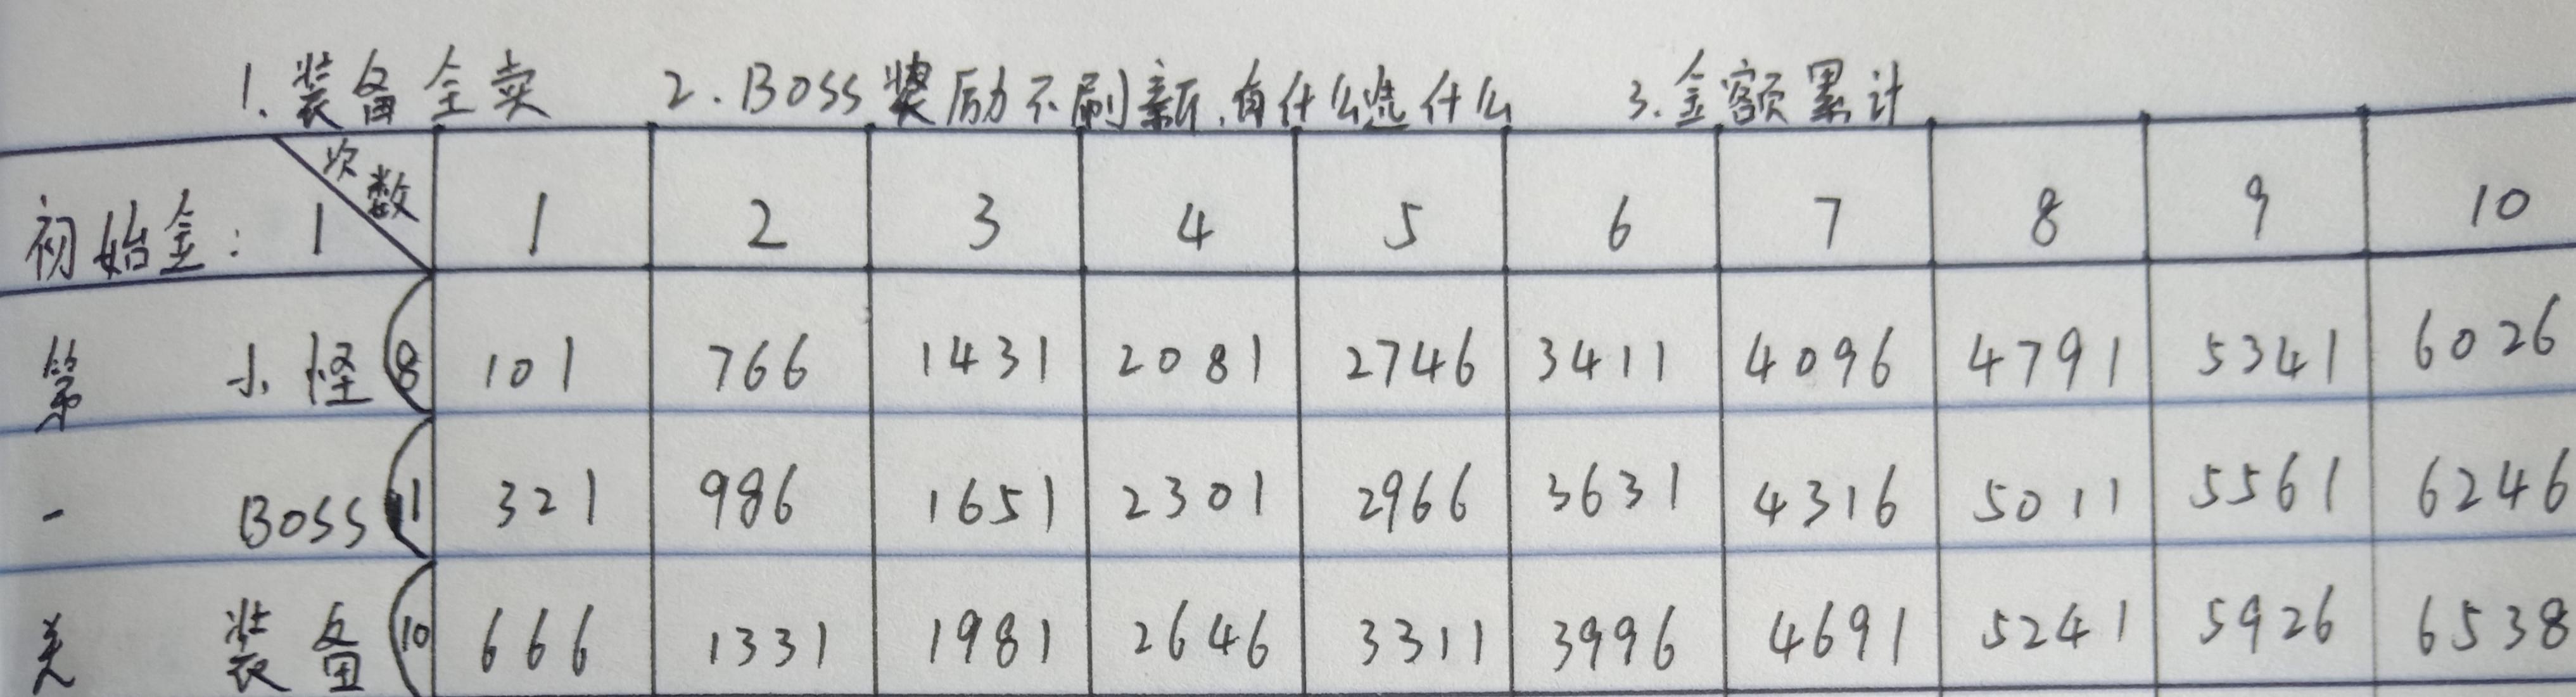 1.装备全卖 2.Boss奖励不刷新,有什么选什么 3.金额累计
初始金:1 次数 1 2 3 4 5 6 7 8 9 10
第 小怪(8 101 766 1431 2081 2746 3411 4096 4791 5341 6026
一 Boss(1 321 986 1651 2301 2966 3631 4316 5011 5561 6246
关 装备(10 666 1331 1981 2646 3311 3996 4691 5241 5926 6538